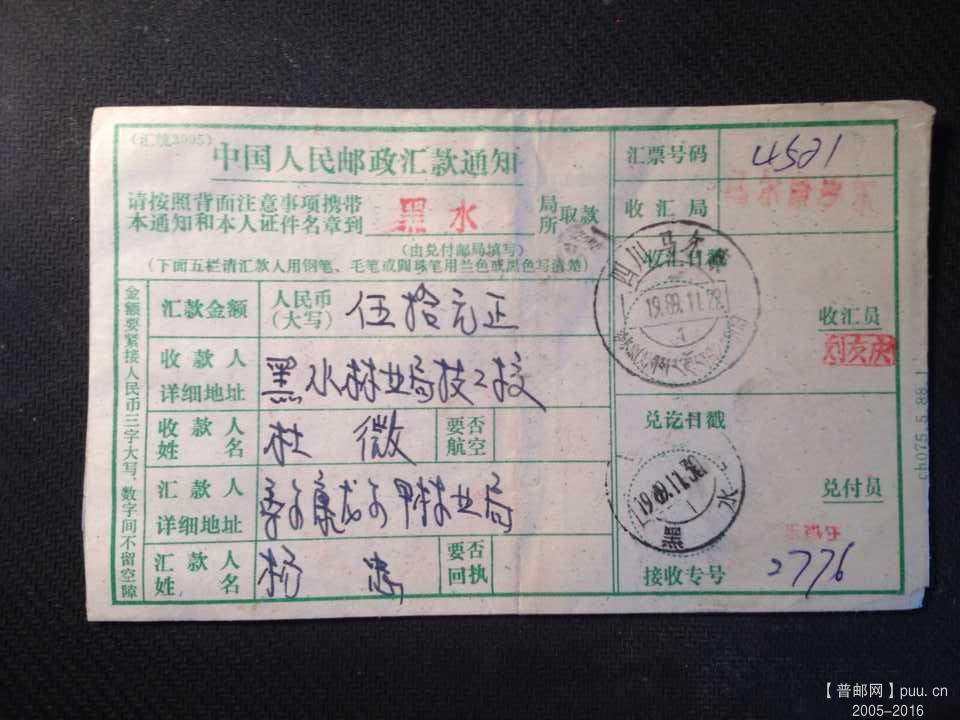 (汇统2005)
中国人民邮政汇款通知
请按照背面注意事项携带
本通知和本人证件名章到 黑水 局所取款
(由兑付邮局填写)
(下面五栏请汇款人用钢笔、毛笔或圆珠笔用兰色或黑色写清楚)
金额要紧接人民币三字大写,数字间不留空隙
汇款金额 人民币(大写) 伍拾元正
收款人详细地址 黑水林业局技工校
收款人姓名 杜微 要否航空
汇款人详细地址 林业局
汇款人姓名 杨忠 要否回执
汇票号码 4521
收汇局 马尔康
收汇日戳
四川马尔康
1989.11.28
收汇员
兑讫日戳
1989.11.30
黑水
兑付员
接收专号 2776
ch075.5.88.1
【普邮网】puu.cn
2005-2016